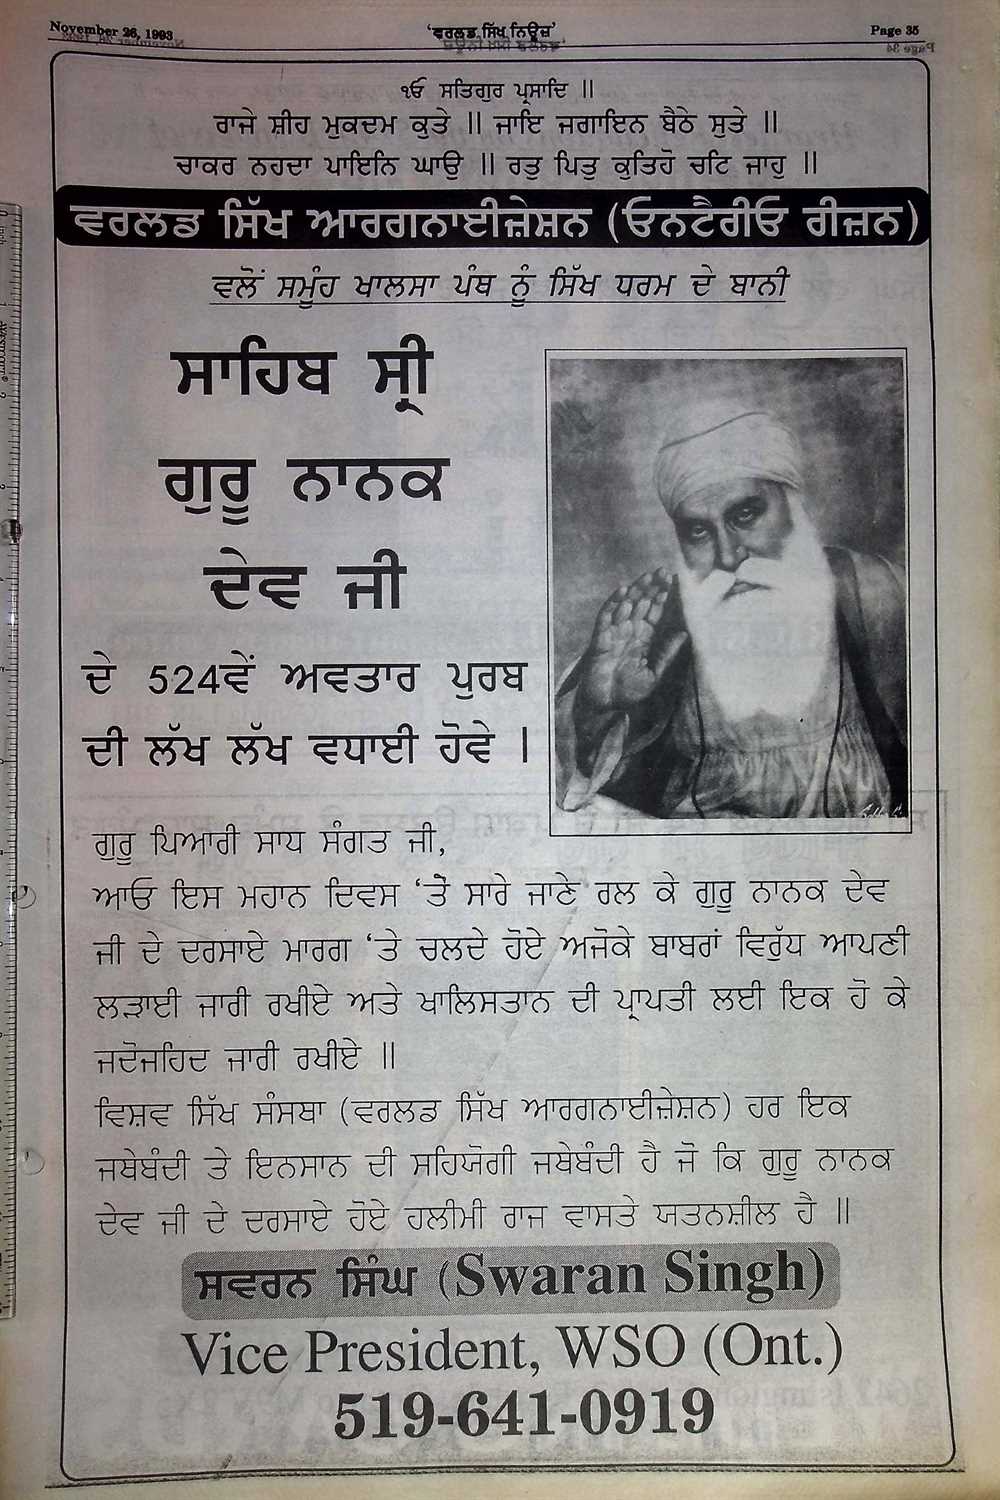 November 26, 1993 'ਵਰਲਡ ਸਿੱਖ ਨਿਊਜ਼' Page 35
ੴ ਸਤਿਗੁਰ ਪ੍ਰਸਾਦਿ ॥
ਰਾਜੇ ਸ਼ੀਹ ਮੁਕਦਮ ਕੁਤੇ ॥ ਜਾਇ ਜਗਾਇਨ ਬੈਠੇ ਸੁਤੇ ॥
ਚਾਕਰ ਨਹਦਾ ਪਾਇਨਿ ਘਾਉ ॥ ਰਤੁ ਪਿਤੁ ਕੁਤਿਹੋ ਚਟਿ ਜਾਹੁ ॥
ਵਰਲਡ ਸਿੱਖ ਆਰਗਨਾਈਜ਼ੇਸ਼ਨ (ਓਨਟੈਰੀਓ ਰੀਜ਼ਨ)
ਵਲੋਂ ਸਮੂੰਹ ਖਾਲਸਾ ਪੰਥ ਨੂੰ ਸਿੱਖ ਧਰਮ ਦੇ ਬਾਨੀ
ਸਾਹਿਬ ਸ੍ਰੀ
ਗੁਰੂ ਨਾਨਕ
ਦੇਵ ਜੀ
ਦੇ 524ਵੇਂ ਅਵਤਾਰ ਪੁਰਬ
ਦੀ ਲੱਖ ਲੱਖ ਵਧਾਈ ਹੋਵੇ ।
ਗੁਰੂ ਪਿਆਰੀ ਸਾਧ ਸੰਗਤ ਜੀ,
ਆਓ ਇਸ ਮਹਾਨ ਦਿਵਸ 'ਤੇ ਸਾਰੇ ਜਾਣੇ ਰਲ ਕੇ ਗੁਰੂ ਨਾਨਕ ਦੇਵ
ਜੀ ਦੇ ਦਰਸਾਏ ਮਾਰਗ 'ਤੇ ਚਲਦੇ ਹੋਏ ਅਜੋਕੇ ਬਾਬਰਾਂ ਵਿਰੁੱਧ ਆਪਣੀ
ਲੜਾਈ ਜਾਰੀ ਰਖੀਏ ਅਤੇ ਖਾਲਿਸਤਾਨ ਦੀ ਪ੍ਰਾਪਤੀ ਲਈ ਇਕ ਹੋ ਕੇ
ਜਦੋਜਹਿਦ ਜਾਰੀ ਰਖੀਏ ॥
ਵਿਸ਼ਵ ਸਿੱਖ ਸੰਸਥਾ (ਵਰਲਡ ਸਿੱਖ ਆਰਗਨਾਈਜ਼ੇਸ਼ਨ) ਹਰ ਇਕ
ਜਥੇਬੰਦੀ ਤੇ ਇਨਸਾਨ ਦੀ ਸਹਿਯੋਗੀ ਜਥੇਬੰਦੀ ਹੈ ਜੋ ਕਿ ਗੁਰੂ ਨਾਨਕ
ਦੇਵ ਜੀ ਦੇ ਦਰਸਾਏ ਹੋਏ ਹਲੀਮੀ ਰਾਜ ਵਾਸਤੇ ਯਤਨਸ਼ੀਲ ਹੈ ॥
ਸਵਰਨ ਸਿੰਘ (Swaran Singh)
Vice President, WSO (Ont.)
519-641-0919